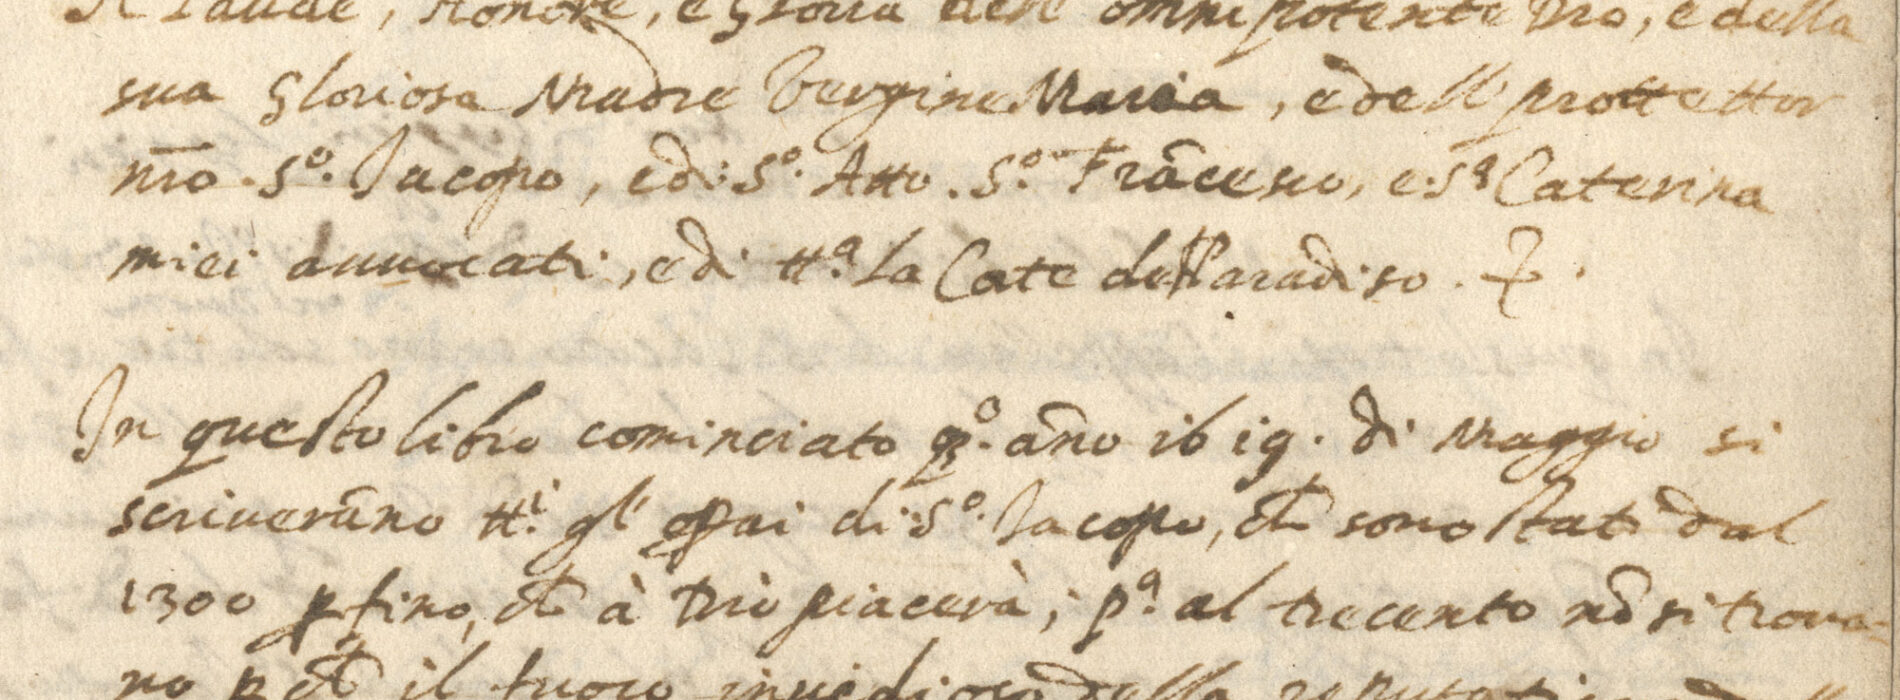 A Laude, Honore, e Gloria dell' omnipotente Dio, e della
sua Gloriosa Madre Vergine Maria, e dell' prottettor
nrō. Sº. Jacopo, e di: Sº. Atto. Sº. Frācesco, e Sª Caterina
miei auuocati, e di ttª. la Cote del Paradiso.
In questo libro cominciato qº. āno 1619. di Maggio si
scriuerāno ttⁱ. gl' opai di: Sº. Jacopo, ch sono stati dal
1300 p fino, ch à Dio piacerà; pª. al trecento nō si trova-
no p ch il fuoco invidioso della